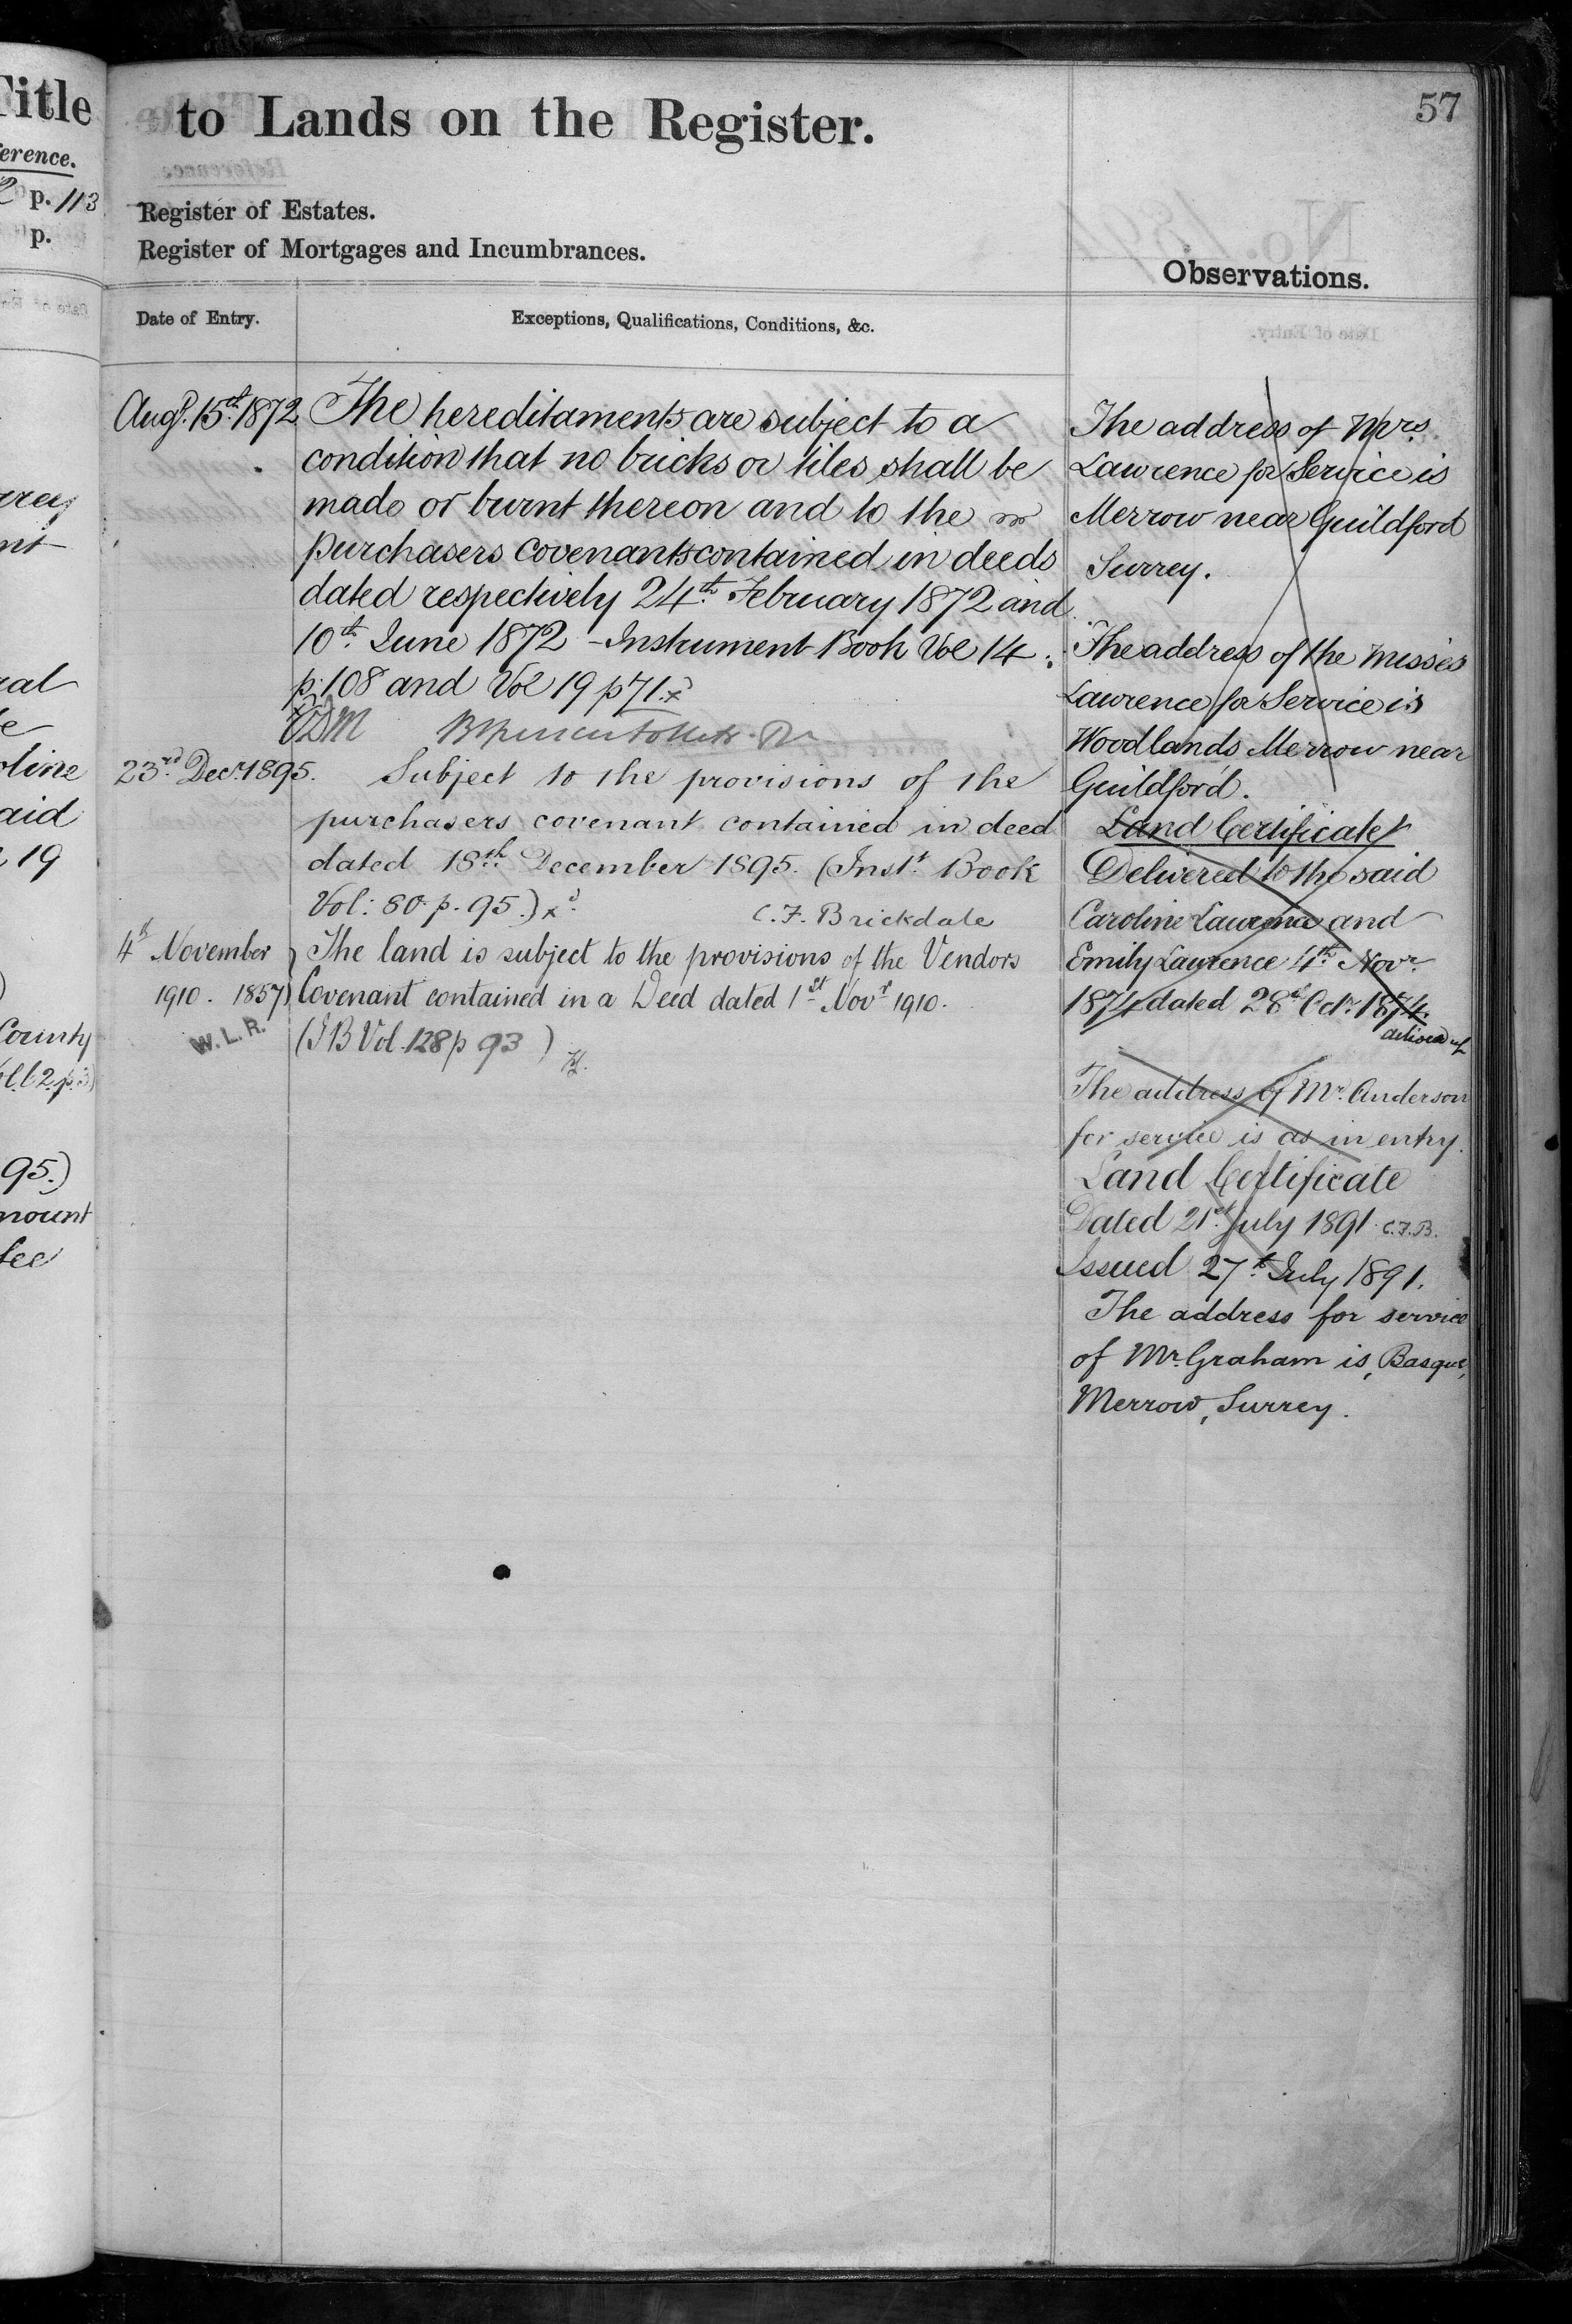 Title
to Lands on the Register.
57
erence.
p. 113
p.
Register of Estates.
Register of Mortgages and Incumbrances.
Observations.
Date of Entry.
Exceptions, Qualifications, Conditions, &c.
Augt. 15th 1872
The hereditaments are subject to a
condition that no bricks or tiles shall be
made or burnt thereon and to the
purchasers covenants contained in deeds
dated respectively 24th February 1872 and
10th June 1872 - Instrument Book Vol 14
p. 108 and Vol 19 p 71. xd
23rd Decr. 1895.
Subject to the provisions of the
purchasers covenant contained in deed
dated 18th December 1895. (Inst. Book
Vol: 80. p. 95.) xd
C. F. Brickdale
4th November
1910. 1857
W. L. R.
The land is subject to the provisions of the Vendors
Covenant contained in a Deed dated 1st Novr 1910.
(I B Vol. 128 p 93 )
The address of Mrs.
Lawrence for Service is
Merrow near Guildford
Surrey.
The address of the Misses
Lawrence for Service is
Woodlands Merrow near
Guildford.
Land Certificate
Delivered to the said
Caroline Lawrence and
Emily Lawrence 4th Novr.
1874 dated 28th Octr. 1874.
delivered up
The address of Mr. Anderson
for service is as in entry.
Land Certificate
Dated 21st July 1891. C.F.B.
Issued 27th July 1891.
The address for service
of Mr. Graham is, Basque,
Merrow, Surrey.
oline
aid
19
County
95.)
mount